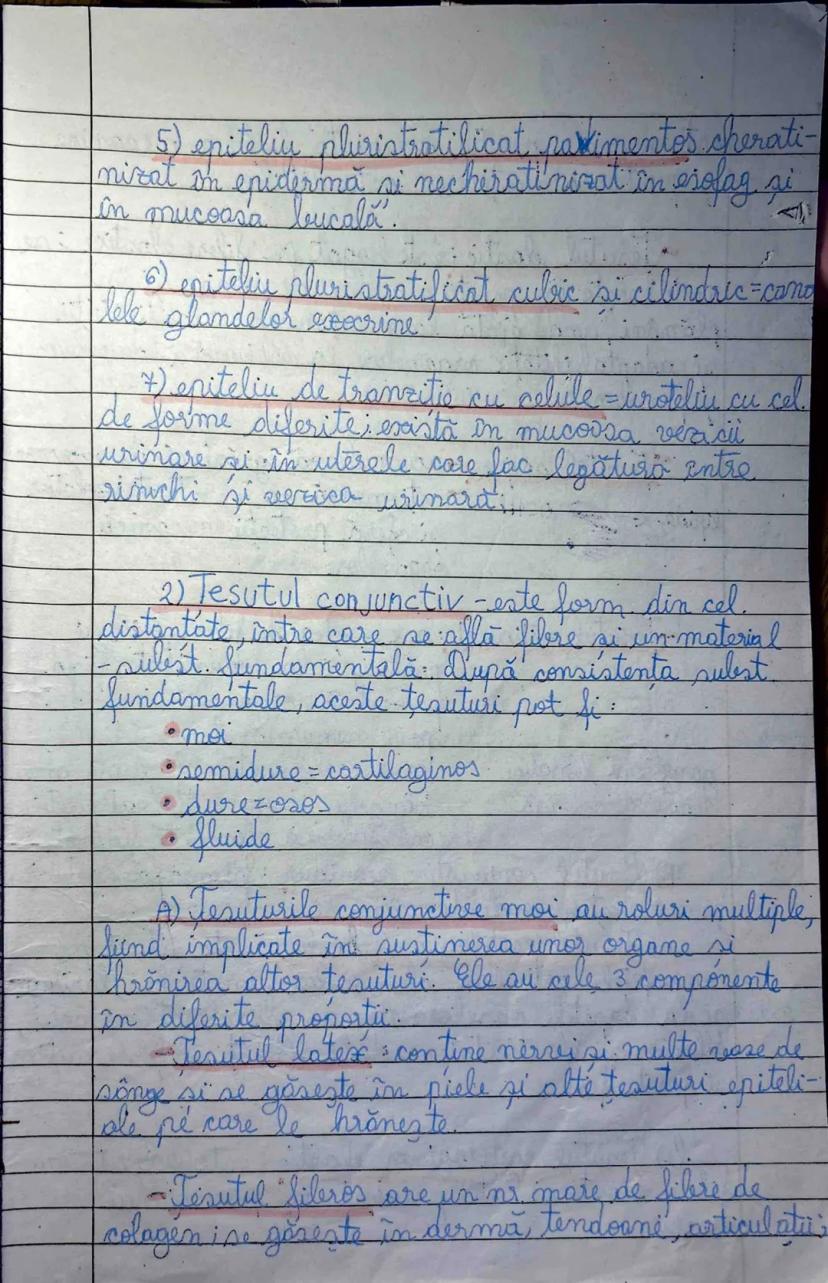 5) epiteliu pluristratificat pavimentos cherati-
nizat în epidermă și necheratinizat în esofag și
în mucoasa bucală.
6) epiteliu pluristratificat cubic și cilindric=cana
lele glandelor exocrine
7) epiteliu de tranziție cu celule = uroteliu cu cel.
de forme diferite; există în mucoasa vezicii
urinare și în uterele care fac legătura între
rinichi și vezica urinară;
2) Țesutul conjunctiv - este form. din cel.
distanțate, între care se află fibre și un material
- subst. fundamentală. După consistența subst.
fundamentale, aceste țesuturi pot fi:
• moi
• semidure = cartilaginos
• dure = osos
• fluide
A) Țesuturile conjunctive moi au roluri multiple,
fiind implicate în susținerea unor organe și
hrănirea altor țesuturi. Ele au cele 3 componente
în diferite proporții.
- Țesutul latex: conține nervi și multe vase de
sânge și se găsește în piele și alte țesuturi epiteli-
ale pe care le hrănește.
- Țesutul fibros are un nr. mare de fibre de
colagen; se găsește în dermă, tendoane, articulații;